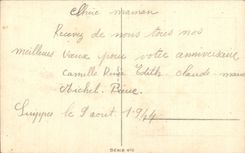 Chère maman
Recevez de nous tous nos
meilleurs vœux pour votre anniversaire
Camille Edith Claude
Michel
Suippes le 9 août